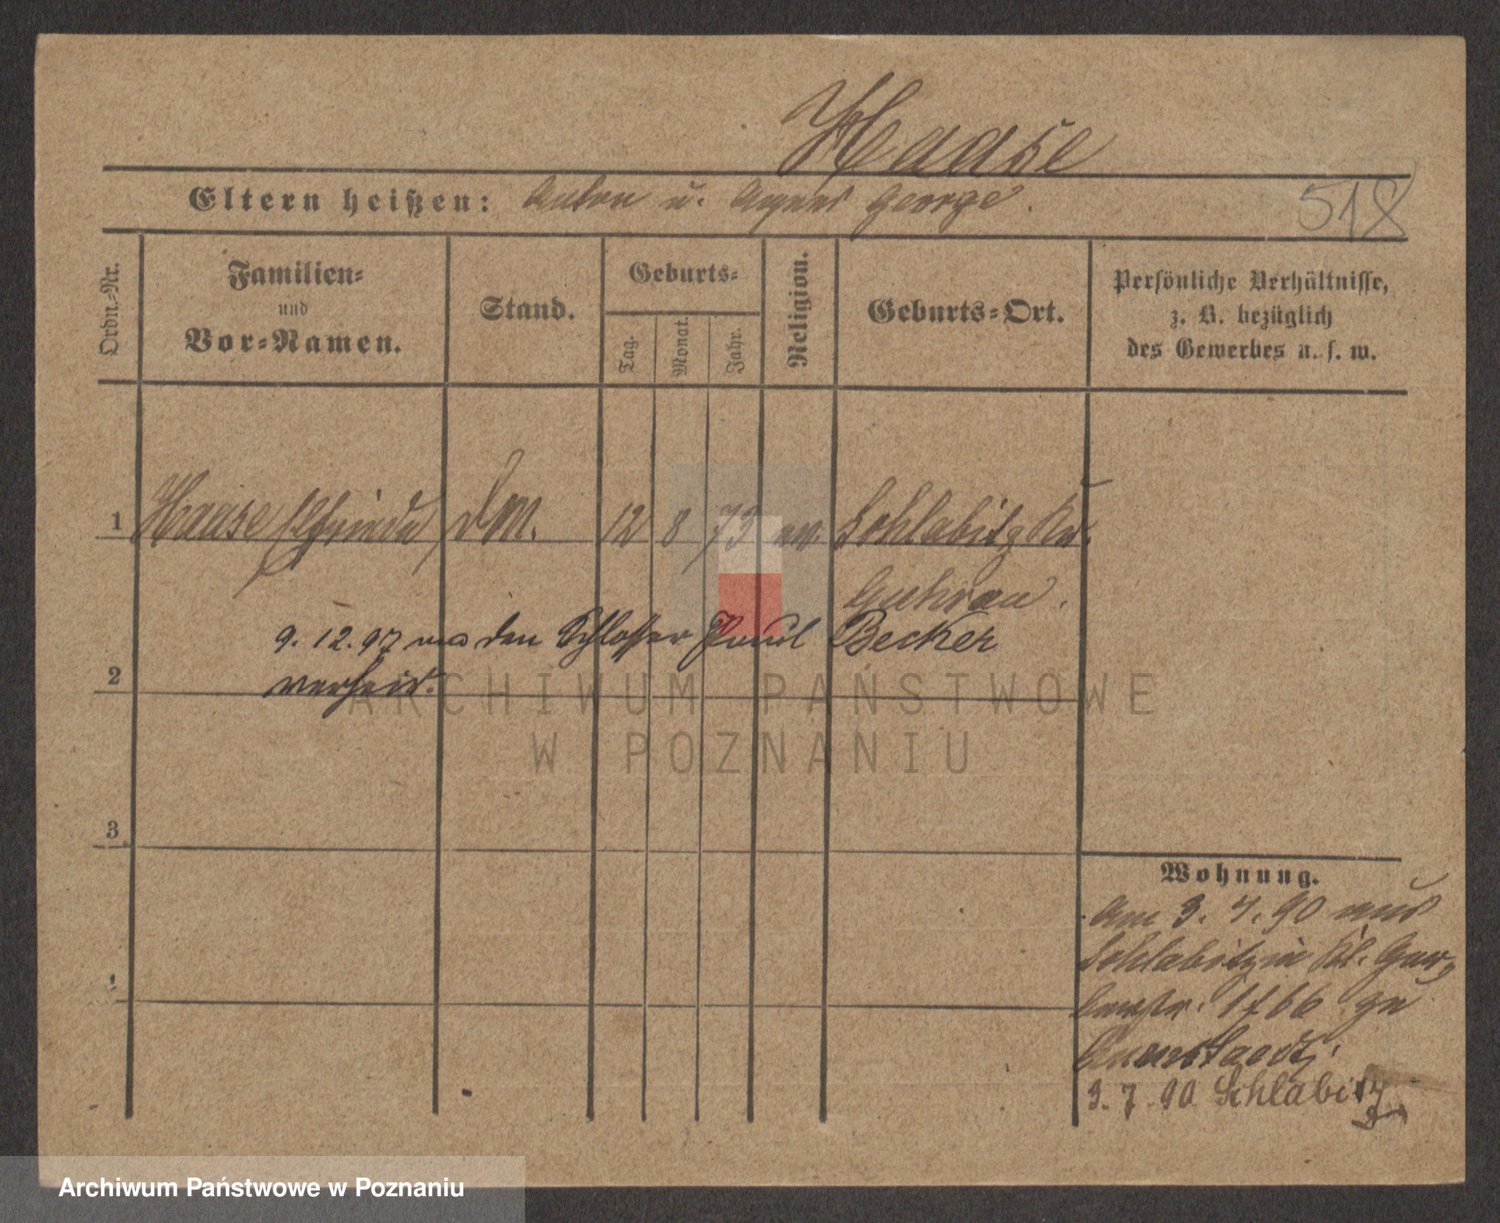 Haase
Eltern heißen: Anton u. Agnes George.
518
Ordn.-Nr.
Familien-
und
Vor-Namen.
Stand.
Geburts-
Tag.
Monat.
Jahr.
Religion.
Geburts-Ort.
Persönliche Verhältnisse,
z. B. bezüglich
des Gewerbes u. s. w.
1 Haase Elfriede dM. 12 8 73 ev. Schlabitz Kr.
Guhrau.
9. 12. 97 den Schlosser Paul Becker
2 verheir.
3
4
Wohnung.
Am 3. 7. 90 aus
Schlabitz in Kl. Ger-
berstr. 1 f 66 zu
3. 7. 90 Schlabitz
ARCHIWUM PAŃSTWOWE
W POZNANIU
Archiwum Państwowe w Poznaniu